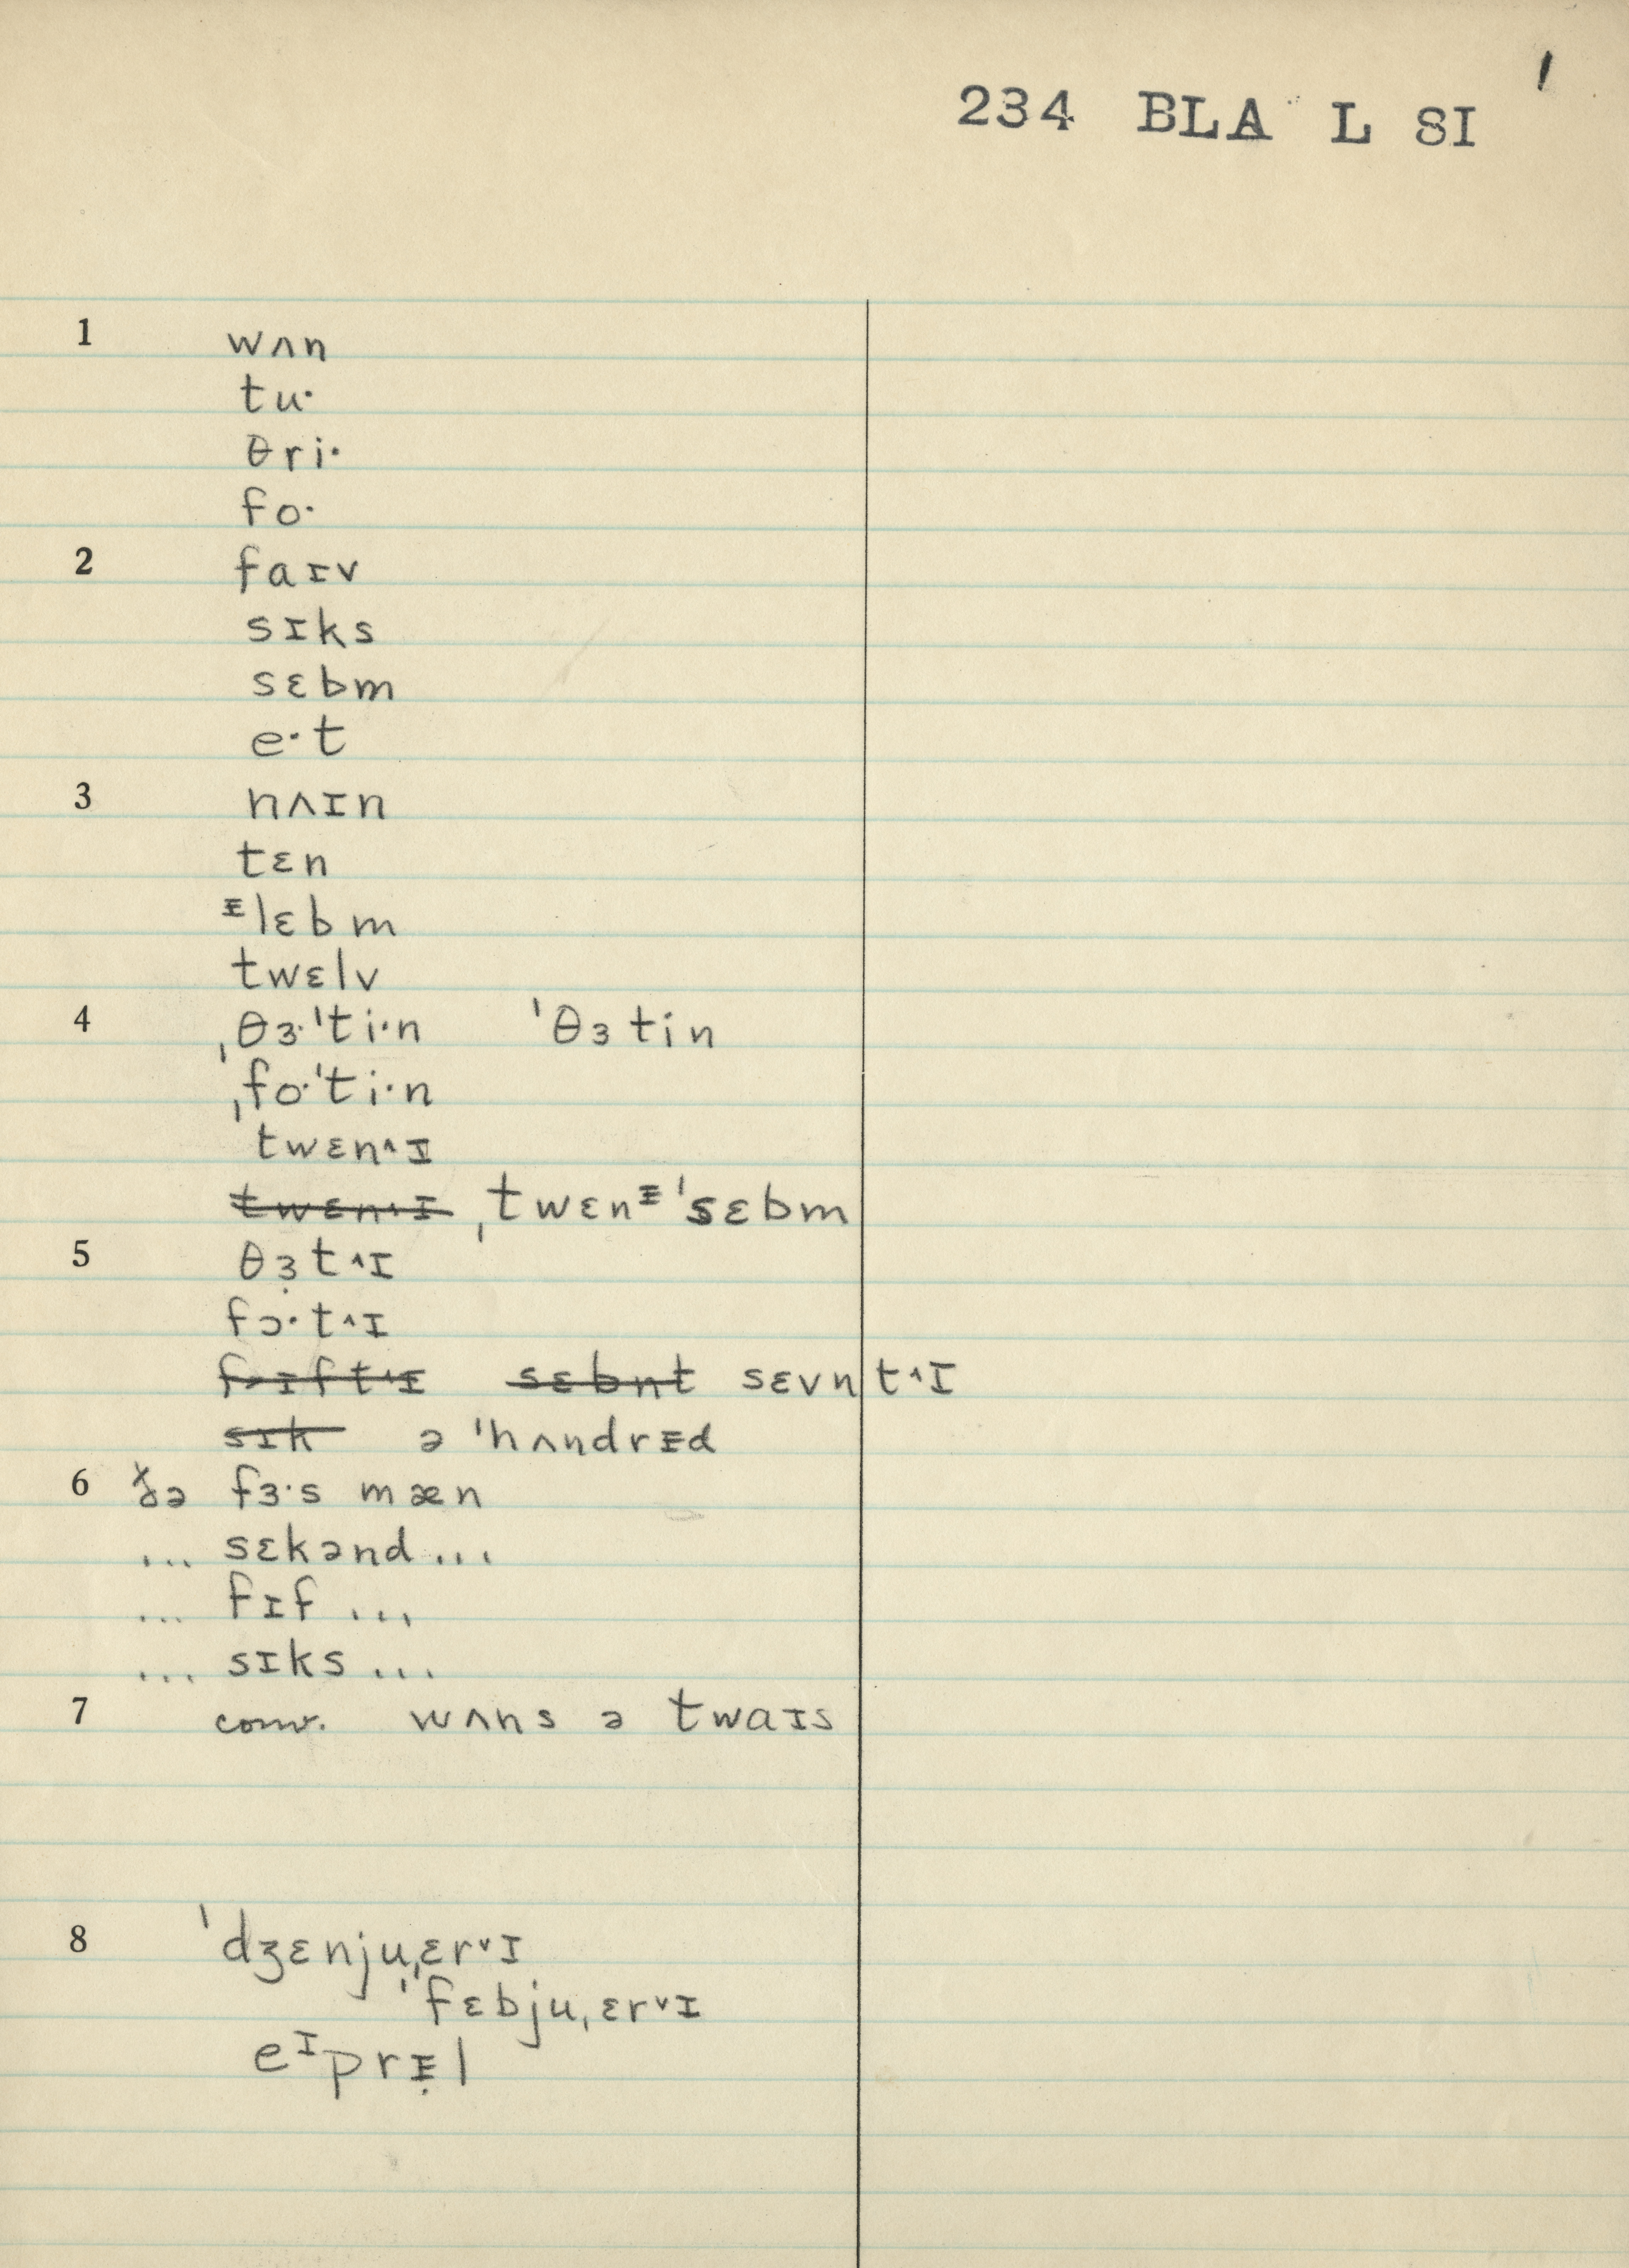 234 BLA L SI 1
1 wʌn
tu·
θri·
fo·
2 faɪv
sɪks
sɛbm
e·t
3 nʌɪn
tɛn
ᵻlɛbm
twɛlv
4 ˌθɜ·ˈti·n ˈθɜtin
ˌfo·ˈti·n
twɛn˄ɪ
twɛn˄ɪ ˌtwɛnᵻˈsɛbm
5 θɜ̣t˄ɪ
fɔ·t˄ɪ
fɪft˄ɪ sɛbnt sɛvnt˄ɪ
sɪk ə ˈhʌndrᵻd
6 ðə fɜ·s mæn
... sɛkənd ...
... fɪf ...
... sɪks ...
7 conv. wʌns ə twaɪs
8 ˈdʒɛnjuˌɛr˅ɪ
ˈfɛbjuˌɛr˅ɪ
eᶦprᵻ̣l